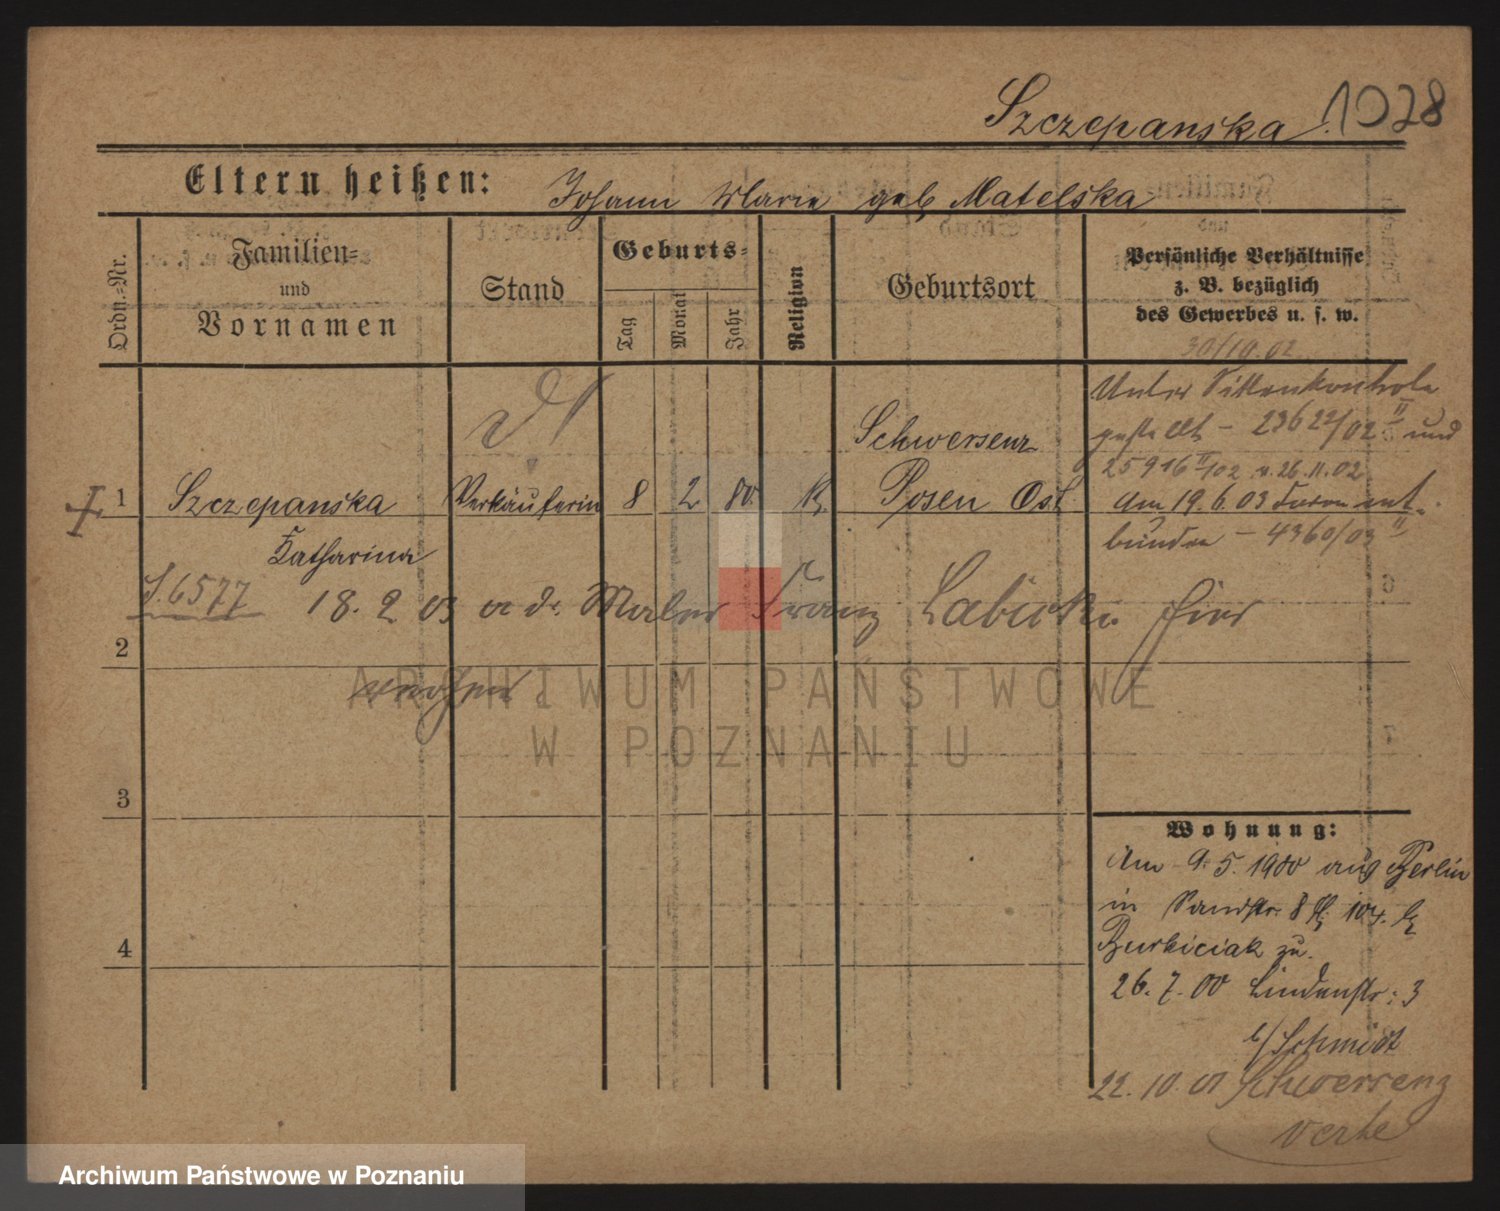 Szczepanska. 1028
Eltern heißen: Johann Marie geb. Matelska
Ordn.-Nr.
Familien-
und
Vornamen
Stand
Geburts-
Tag
Monat
Jahr
Religion
Geburtsort
Persönliche Verhältnisse
z. B. bezüglich
des Gewerbes u. s. w.
30/10.02
Unter Sittenkontrole
gestellt - 23622/02 II und
25916 II/02 v. 26.11.02
Am 19.6.03 davon ent-
bunden - 4360/03 II
1 Szczepanska Verkäuferin 8 2 80 K. Schwersenz
Posen Ost
Katharina
J. 6577 18. 2 03 a. d. Maler Franz hier
2
3
4
Wohnung:
Am 9. 5. 1900 aus Berlin
in Sandstr. 8 b.
zu.
26. 7. 00 Lindenstr: 3
b/ Schmidt
22. 10. 01 Schwersenz
verte
ARCHIWUM PAŃSTWOWE
W POZNANIU
Archiwum Państwowe w Poznaniu